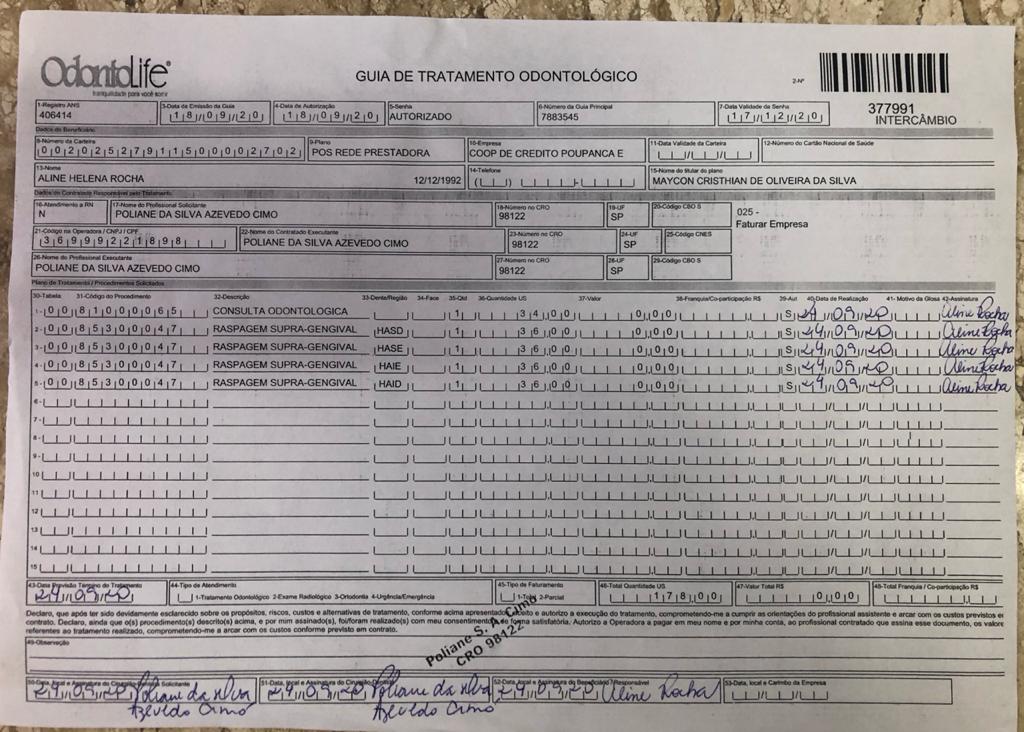 OdontoLife
tranquilidade para você sorrir
GUIA DE TRATAMENTO ODONTOLÓGICO
2-Nº
377991
INTERCÂMBIO
1-Registro ANS 3-Data de Emissão da Guia 4-Data de Autorização 5-Senha 6-Número da Guia Principal 7-Data Validade da Senha
406414 18/09/20 18/09/20 AUTORIZADO 7883545 17/12/20
Dados do Beneficiário
8-Número da Carteira 9-Plano 10-Empresa 11-Data Validade da Carteira 12-Número do Cartão Nacional de Saúde
00202527911500002702 POS REDE PRESTADORA COOP DE CREDITO POUPANCA E
13-Nome 14-Telefone 15-Nome do titular do plano
ALINE HELENA ROCHA 12/12/1992 MAYCON CRISTHIAN DE OLIVEIRA DA SILVA
Dados do Contratado Responsável pelo Tratamento
16-Atendimento a RN 17-Nome do Profissional Solicitante 18-Número no CRO 19-UF 20-Código CBO S
N POLIANE DA SILVA AZEVEDO CIMO 98122 SP
025 -
Faturar Empresa
21-Código na Operadora / CNPJ / CPF 22-Nome do Contratado Executante 23-Número no CRO 24-UF 25-Código CNES
36999221898 POLIANE DA SILVA AZEVEDO CIMO 98122 SP
26-Nome do Profissional Executante 27-Número no CRO 28-UF 29-Código CBO S
POLIANE DA SILVA AZEVEDO CIMO 98122 SP
Plano de Tratamento / Procedimentos Solicitados
30-Tabela 31-Código do Procedimento 32-Descrição 33-Dente/Região 34-Face 35-Qtd 36-Quantidade US 37-Valor 38-Franquia/Co-participação R$ 39-Aut 40-Data de Realização 41- Motivo da Glosa 42-Assinatura
1- 00 81000065 CONSULTA ODONTOLOGICA 1 34,00 0,00 S 24/09/20 Aline Rocha
2- 00 85300047 RASPAGEM SUPRA-GENGIVAL HASD 1 36,00 0,00 S 24/09/20 Aline Rocha
3- 00 85300047 RASPAGEM SUPRA-GENGIVAL HASE 1 36,00 0,00 S 24/09/20 Aline Rocha
4- 00 85300047 RASPAGEM SUPRA-GENGIVAL HAIE 1 36,00 0,00 S 24/09/20 Aline Rocha
5- 00 85300047 RASPAGEM SUPRA-GENGIVAL HAID 1 36,00 0,00 S 24/09/20 Aline Rocha
6-
7-
8-
9-
10
11
12
13
14
15
43-Data Previsão Término do Tratamento 44-Tipo de Atendimento 45-Tipo de Faturamento 46-Total Quantidade US 47-Valor Total R$ 48-Total Franquia / Co-participação R$
24/09/20 1-Tratamento Odontológico 2-Exame Radiológico 3-Ortodontia 4-Urgência/Emergência 1-Total 2-Parcial 178,00 0,00
Declaro, que após ter sido devidamente esclarecido sobre os propósitos, riscos, custos e alternativas de tratamento, conforme acima apresentado, e autorizo a execução do tratamento, comprometendo-me a cumprir as orientações do profissional assistente e arcar com os custos previstos em
contrato. Declaro, ainda que o(s) procedimento(s) descrito(s) acima, e por mim assinado(s), foi/foram realizado(s) com meu consentimento e de forma satisfatória. Autorizo a Operadora a pagar em meu nome e por minha conta, ao profissional contratado que assina esse documento, os valores
referentes ao tratamento realizado, comprometendo-me a arcar com os custos conforme previsto em contrato.
Poliane S. A. Cimo
CRO 98122
49-Observação
50-Data, local e Assinatura do Cirurgião-Dentista Solicitante 51-Data, local e Assinatura do Cirurgião-Dentista 52-Data, local e Assinatura do Beneficiário / Responsável 53-Data, local e Carimbo da Empresa
24/09/20 Poliane da Silva 24/09/20 Poliane da Silva 24/09/20 Aline Rocha
Azevedo Cimo Azevedo Cimo